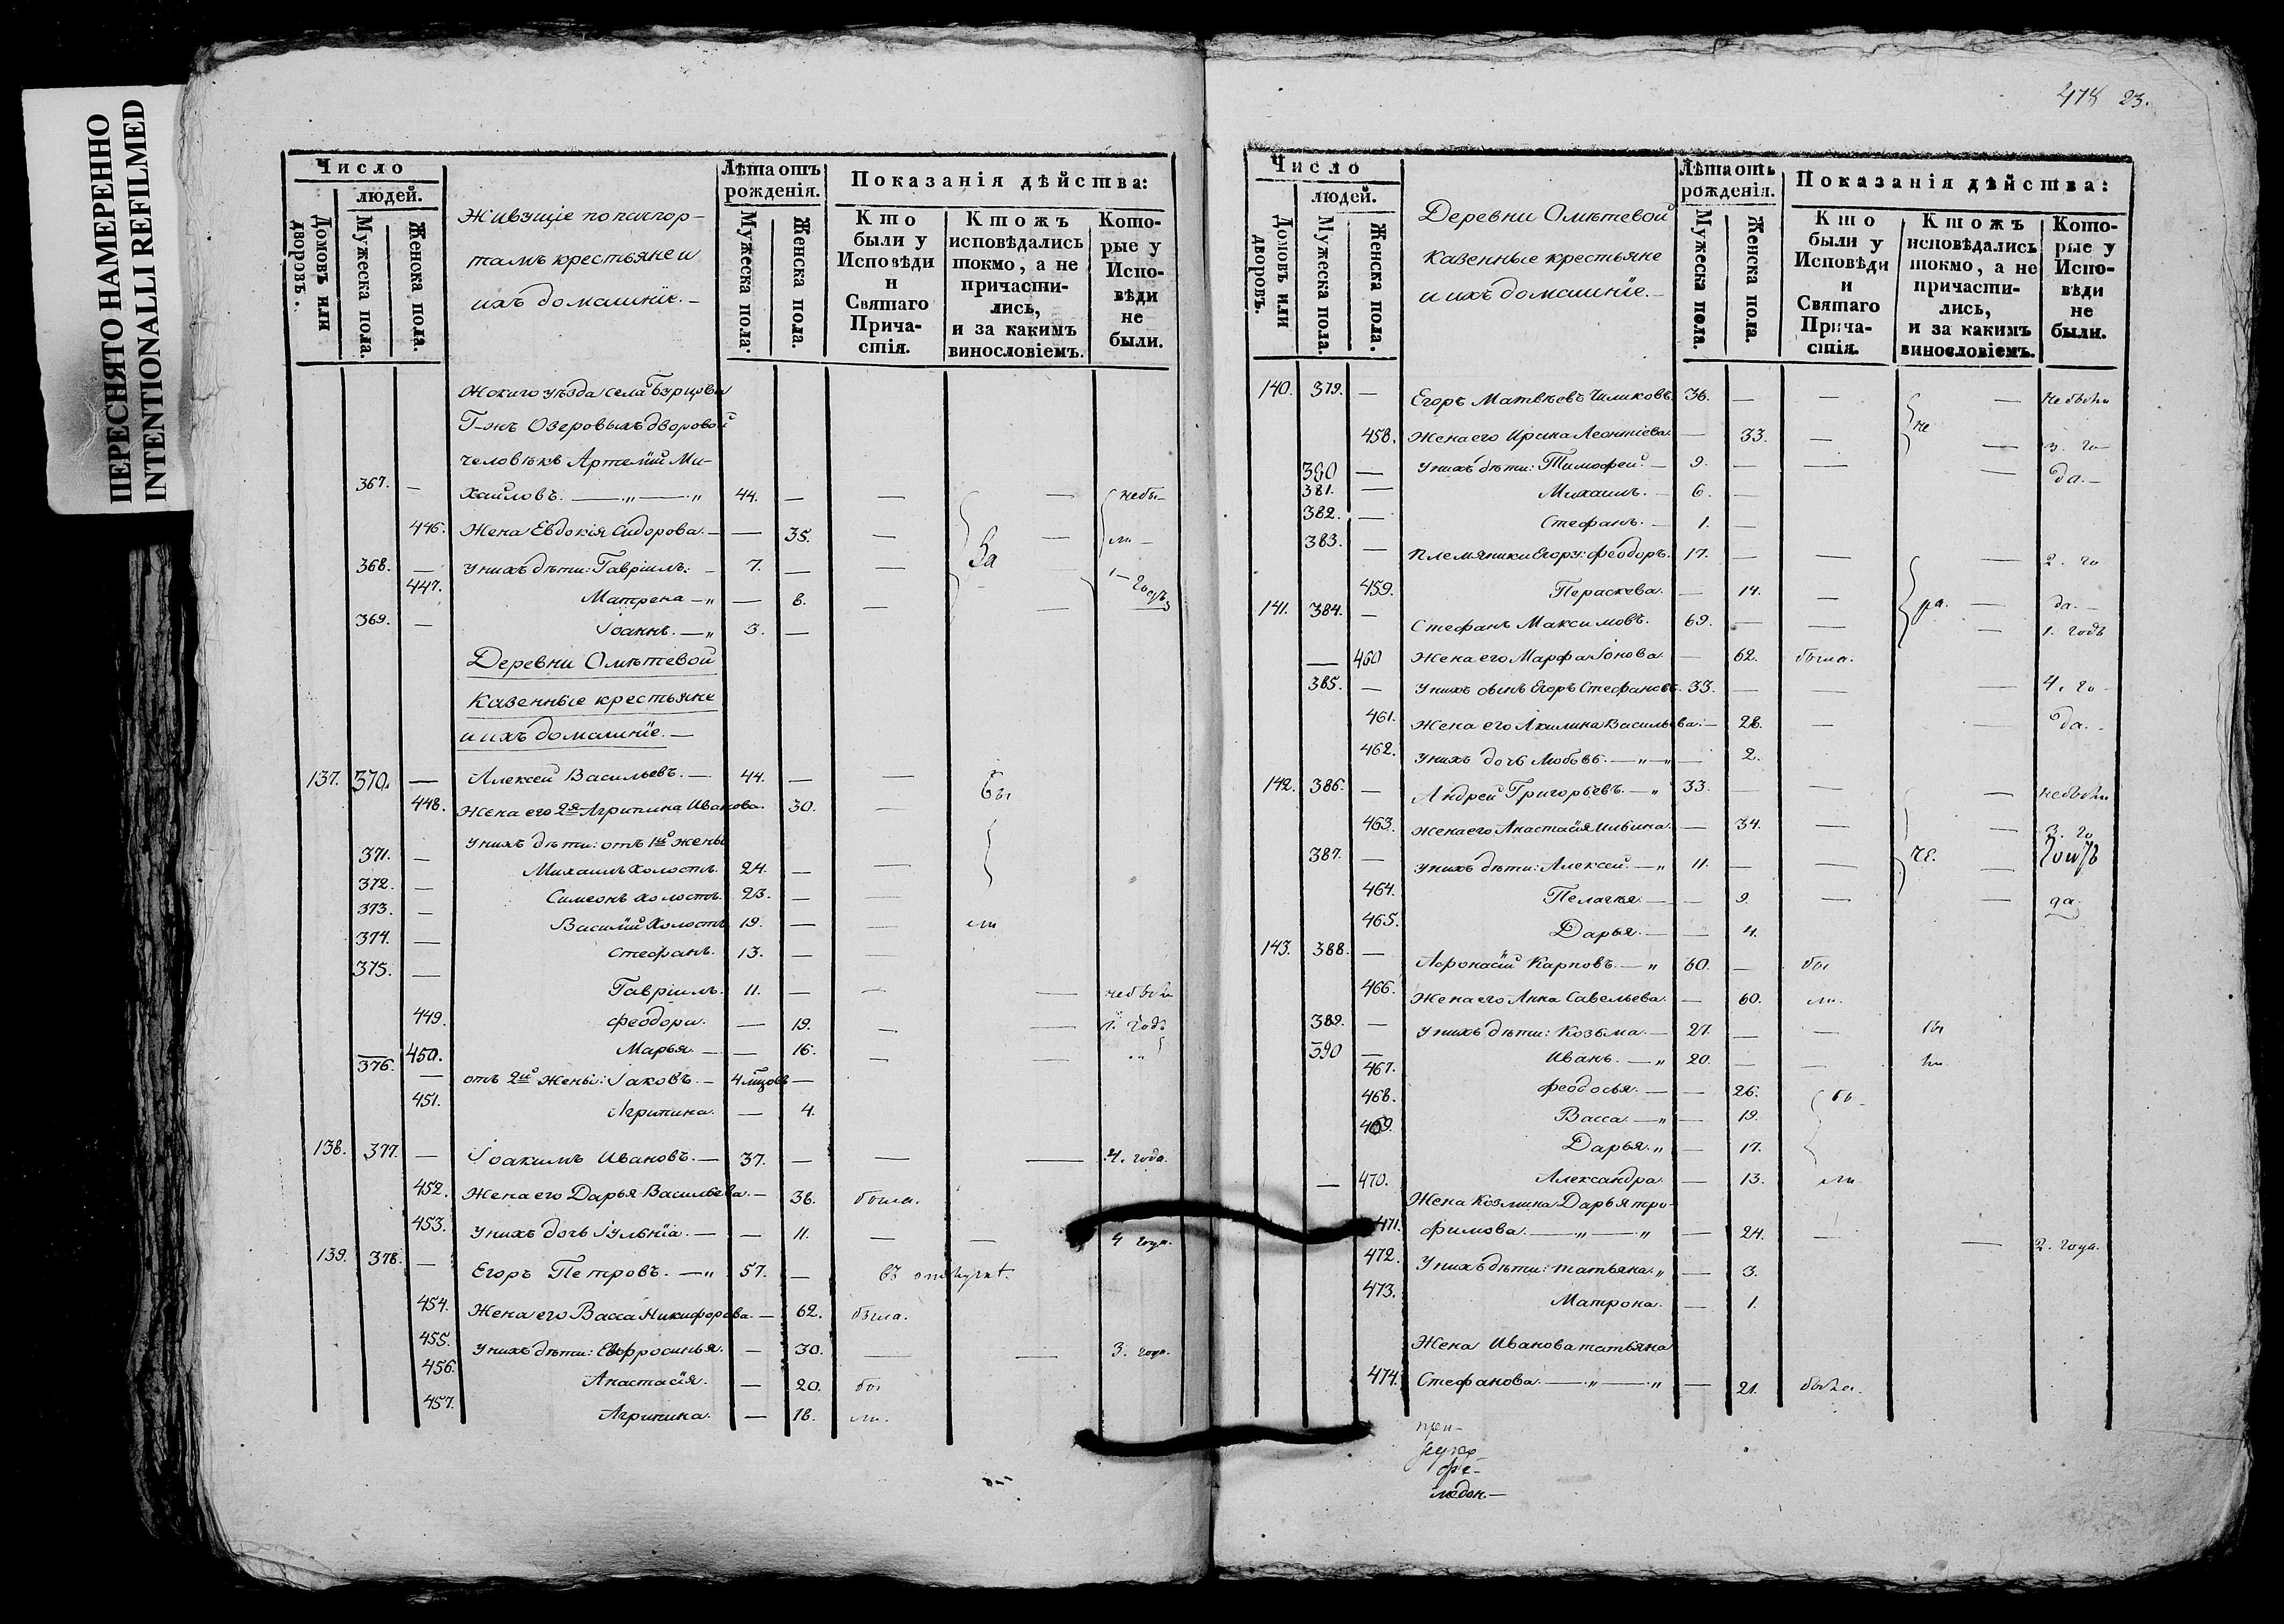 ПЕРЕСНЯТО НАМЕРЕННО
INTENTIONALLI REFILMED
Число
людей.
Домовъ или дворовъ.
Мужеска пола.
Женска пола.
Живущіе по паспор-
тамъ крестьяне и
ихъ домашніе. —
Лѣта отъ рожденія.
Мужеска пола.
Женска пола.
Показанія дѣйства:
Кто были у Исповѣди и Святаго Прича-стія.
Ктожъ исповѣдались токмо, а не причасти-лись, и за какимъ винословіемъ.
Кото-рые у Испо-вѣди не были.
уѣзда села Бурцова
Г-жъ Озеровыхъ дворовой
человѣкъ Артемій Ми-
367. — хайловъ. — „ — „ 44. — — — небы-
446. Жена Евдокія Сидорова. — — 35. — — ли —
368. — У нихъ дѣти: Гавріилъ. — 7. — — За 1 — годъ
447. Матрена — „ — 6. — —
369. — Іоаннъ. — „ 3. —
Деревни Омѣтевой
Казенные крестьяне
и ихъ домашніе. —
137. 370. — Алексей Васильевъ. — 44. — — бы
448. Жена его 2я Агрипина Иванова. 30. —
У нихъ дѣти: отъ 1й жены
371. — Михаилъ холостъ. 24. — —
372. — Симеонъ холостъ. 23. — —
373. — Василій Холостъ 19. — — ли
374. — Стефанъ. 13. — —
375. — Гавріилъ. 11. — — — небыли
449. Феодора. — 19. — — 1. годъ
450. Марья. — — 16. — — „
376. — отъ 2й жены: Іаковъ. — 4 мцовъ —
451. Агрипина. — 4.
138. 377. — Іоакимъ Ивановъ. — 37. — — — 4. года.
452. Жена его Дарья Васильева. — 38. была.
453. У нихъ дочь Іульнія. — — 11. — — 4 года.
139. 378. — Егоръ Петровъ. — „ 57. — въ
454. Жена его Васса Никифорова. — 62. была.
455. У нихъ дѣти: Евфросинья. — 30. — — 3. года.
456. Анастасія. — 20. бы
457. Агрипина. — 18. ли.
478 23.
Число
людей.
Домовъ или дворовъ.
Мужеска пола.
Женска пола.
Деревни Омѣтевой
казенные крестьяне
и ихъ домашніе. —
Лѣта отъ рожденія.
Мужеска пола.
Женска пола.
Показанія дѣйства:
Кто были у Исповѣди и Святаго Прича-стія.
Ктожъ исповѣдались токмо, а не причасти-лись, и за какимъ винословіемъ.
Кото-рые у Испо-вѣди не были.
140. 379. — Егоръ Матвѣевъ Чиликовъ. 36. — — — не были
458. Жена его Ирина Леонтіева. — 33. — не — 3. го —
380 — У нихъ дѣти: Тимофей. — 9. — — — да. —
381. — Михаилъ. — 6. —
382. — Стефанъ. — 1. —
383. — Племяники Егору: Феодоръ. 17. — — — 2. го
459. Пераскева. — — 14. — — да. —
141. 384. — Стефанъ Максимовъ. 69. — — — 1. годъ
— 460 Жена его Марфа Іонова. — 62. была.
385. — У нихъ сынъ Егоръ Стефановъ. 33. — — — 4. го —
461. Жена его Акилина Васильева. — 28. — — да. —
462. У нихъ дочь Любовь. — „ — „ — 2.
142. 386. — Андрей Григорьевъ. — „ 33. — — — небыли
463. Жена его Анастасія Ильина. — 34. — — 3. го
387. — У нихъ дѣти: Алексей. — „ 11. — — —
464. Пелагья. — — 9. — — да
465. Дарья. — — 4.
143. 388. — Афонасій Карповъ. — „ 60. — бы
466. Жена его Анна Савельева. — 60. ли.
389. — У нихъ дѣти: Козьма. — 27. — — бы
390 — Иванъ. — „ 20. — — ли
467. Феодосья. — — 26. бы —
468. Васса. — „ — 19.
469. Дарья. „ — 17.
— 470. Александра. — 13. ли.
Жена Козмина Дарья тро-
471. фимова. — „ — „ — 24. — — 2. года.
472. У нихъ дѣти: татьяна. „ — 3.
473. Матрона. — 1.
Жена Иванова татьяна
474. Стефанова. — „ — „ — 21. была.